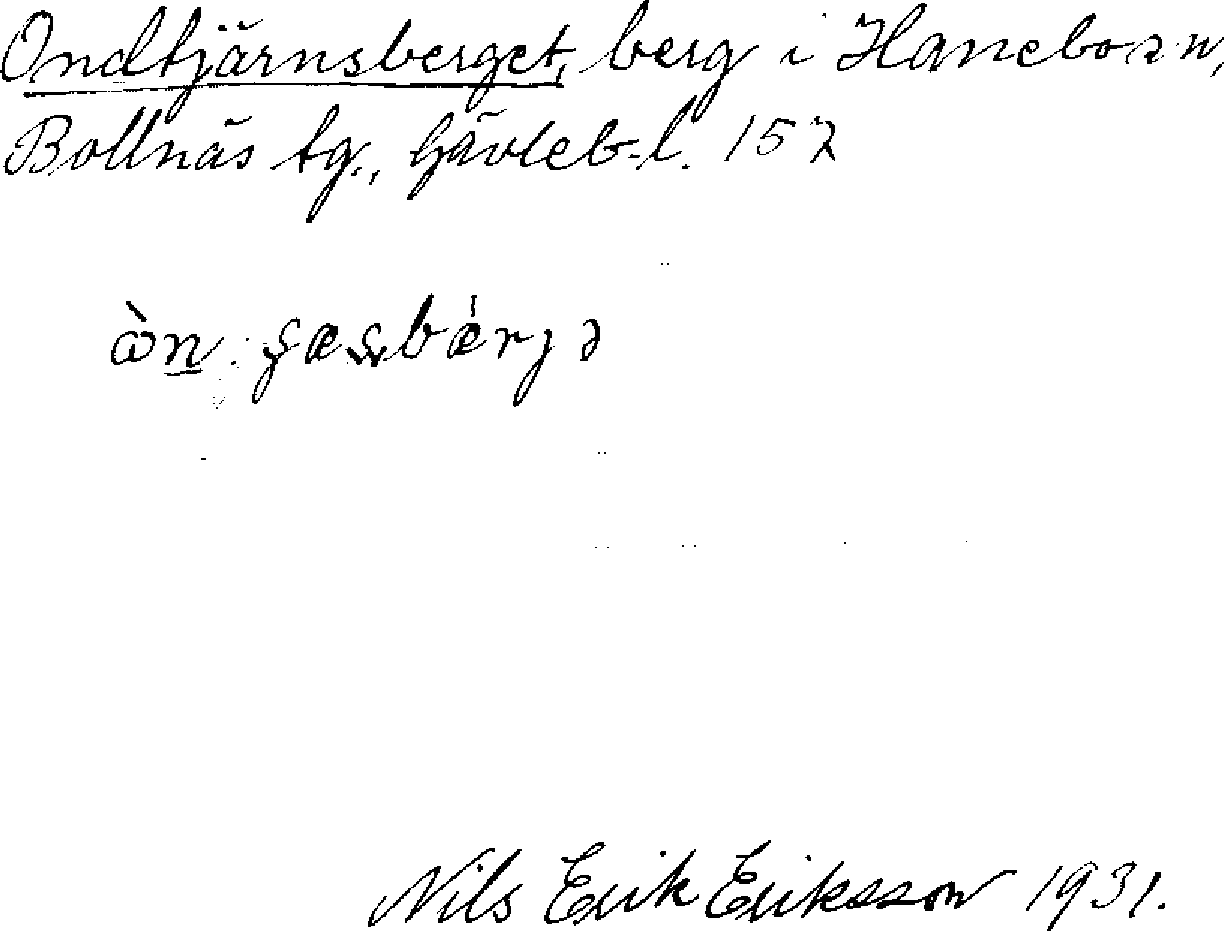 Ondtjärnsberget, berg i Hanebo sn,
Bollnäs tg., Gävleb-l. 157
Nils Erik Eriksson 1931.